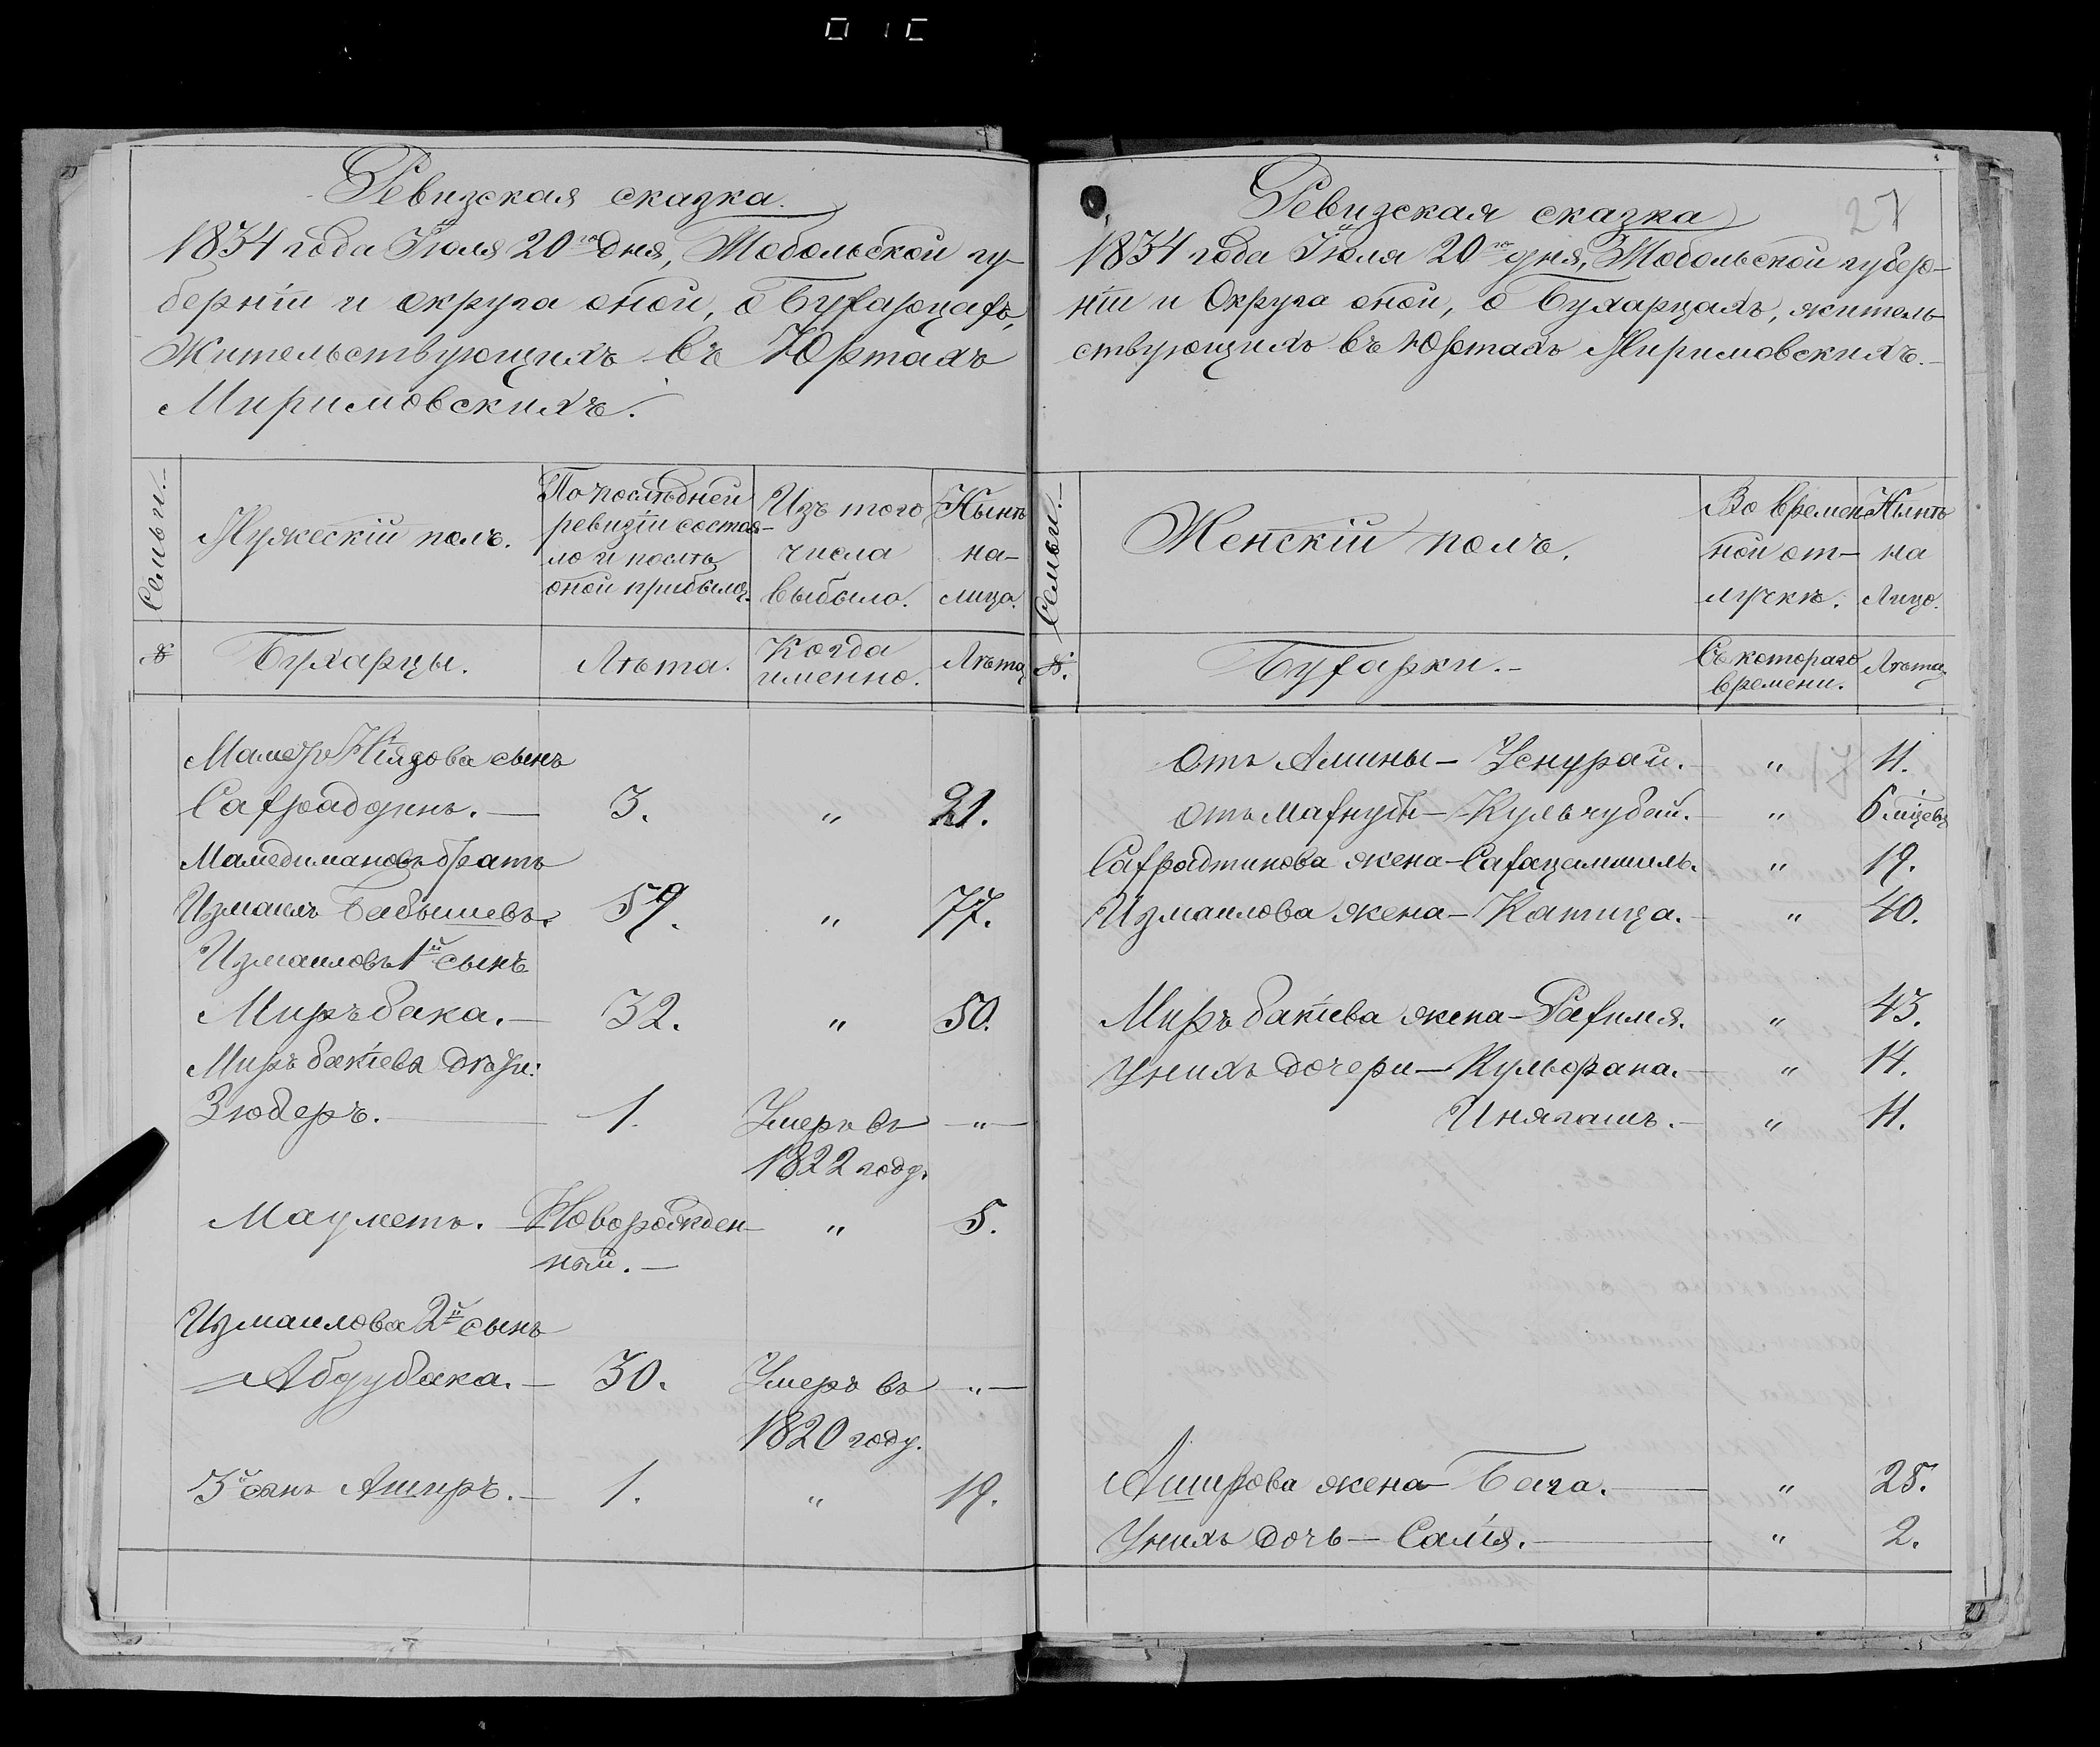 Ревизская сказка.
1834 года Іюля 20го дня, Тобольской гу-
берніи и округа оной, о Бухарцахъ,
Жительствующихъ въ Юртахъ
Миримовскихъ.
Семьи.
Мужескій полъ.
По последней
ревизіи состоя-
ло и послѣ
оной прибыло.
Изъ того
числа
выбыло.
Нынѣ
на-
лицо.
№
Бухарцы.
Лѣта.
Когда
именно.
Лѣта
сынъ
Сафраддинъ. — 3. " 21.
Мамедимановъ братъ
Измаилъ Бабышевъ. 59. " 77.
Измаиловъ 1й сынъ
Миръ бака. — 32. " 50.
Миръ бакіева дѣти:
Зюберъ. — 1. Умеръ въ — " —
1822 году.
Маулетъ. — Новорожден- " 5.
ный. —
Измаилова 2й сынъ
Абдубака. — 30. Умеръ въ — " —
1820 году.
3й сынъ Аширъ. — 1. " 19.
27
Ревизская сказка
1834 года Іюля 20го дня, Тобольской губер-
ніи и Округа оной, о Бухарцахъ, житель-
ствующихъ въ Юртахъ Миримовскихъ. —
Семьи. —
Женскій полъ.
Во времен
ной от-
лучкѣ.
Нынѣ
на
Лицо.
№.
Бухарки. —
Съ котораго
времени.
Лѣта
Отъ Амины — Уенурай. — " 11.
Отъ Махнубы — Кульчубай. — " 6 мцевъ
Сафрадтинова жена — " 19.
Измаилова жена — Катица. — " 40.
Миръ бакіева жена — Рафимя. " 43.
У нихъ дочери — Кульфрана. — " 14.
Инягашъ. — " 11.
Аширова жена — Бага. — " 25.
У нихъ дочь — Салія. — " 2.